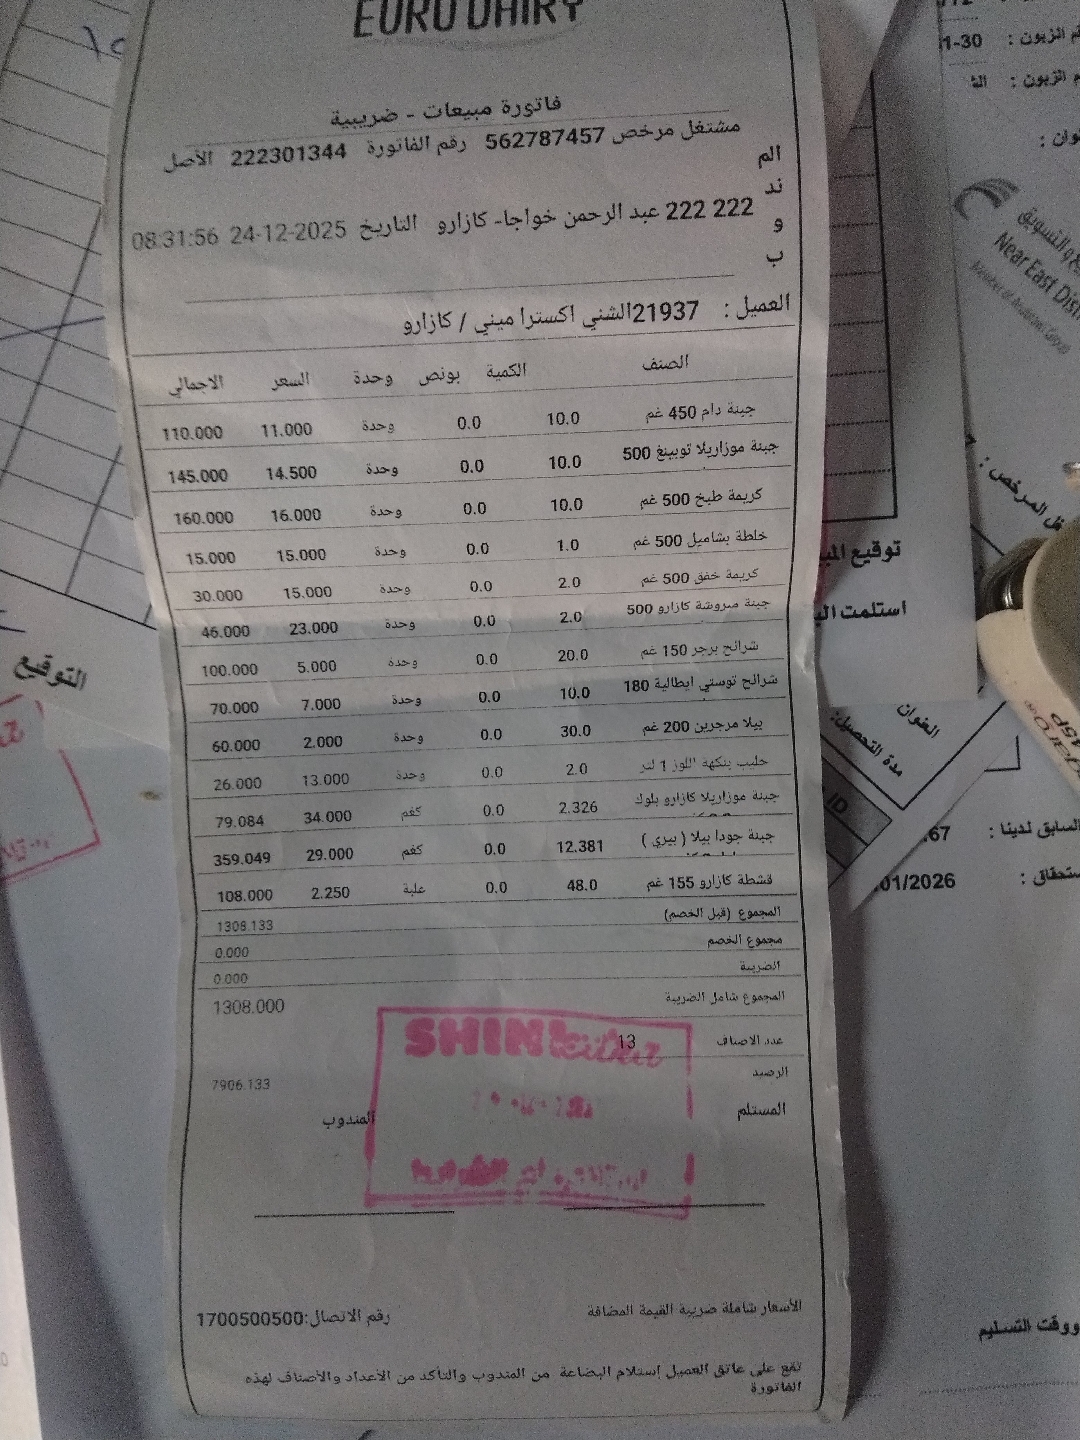 EURO DAIRY
فاتورة مبيعات - ضريبية
مشتغل مرخص 562787457 رقم الفاتورة 222301344 الأصل
المندوب 222 222 عبد الرحمن خواجا- كازارو التاريخ 24-12-2025 08:31:56
العميل : 21937الشني اكسترا ميني / كازارو
الصنف الكمية بونص وحدة السعر الاجمالي
جبنة دام 450 غم 10.0 0.0 وحدة 11.000 110.000
جبنة موزاريلا توبينغ 500 10.0 0.0 وحدة 14.500 145.000
كريمة طبخ 500 غم 10.0 0.0 وحدة 16.000 160.000
خلطة بشاميل 500 غم 1.0 0.0 وحدة 15.000 15.000
كريمة خفق 500 غم 2.0 0.0 وحدة 15.000 30.000
جبنة مبروشة كازارو 500 2.0 0.0 وحدة 23.000 46.000
شرائح برجر 150 غم 20.0 0.0 وحدة 5.000 100.000
شرائح توستي ايطالية 180 10.0 0.0 وحدة 7.000 70.000
بيلا مرجرين 200 غم 30.0 0.0 وحدة 2.000 60.000
حليب بنكهة اللوز 1 لتر 2.0 0.0 وحدة 13.000 26.000
جبنة موزاريلا كازارو بلوك 2.326 0.0 كغم 34.000 79.084
جبنة جودا بيلا ( بيري ) 12.381 0.0 كغم 29.000 359.049
قشطة كازارو 155 غم 48.0 0.0 علبة 2.250 108.000
المجموع (قبل الخصم) 1308.133
مجموع الخصم 0.000
الضريبة 0.000
المجموع شامل الضريبة 1308.000
عدد الاصناف 13
الرصيد 7906.133
المستلم المندوب
SHINI extra
الأسعار شاملة ضريبة القيمة المضافة رقم الاتصال:1700500500
تقع على عاتق العميل إستلام البضاعة من المندوب والتأكد من الأعداد والأصناف لهذه
الفاتورة
التوقيع
1-30 الزبون :
الزبون :
Near East
توقيع
استلمت
العنوان
مدة التحصيل:
ID
السابق لدينا : 67.
01/2026
ووقت التسليم